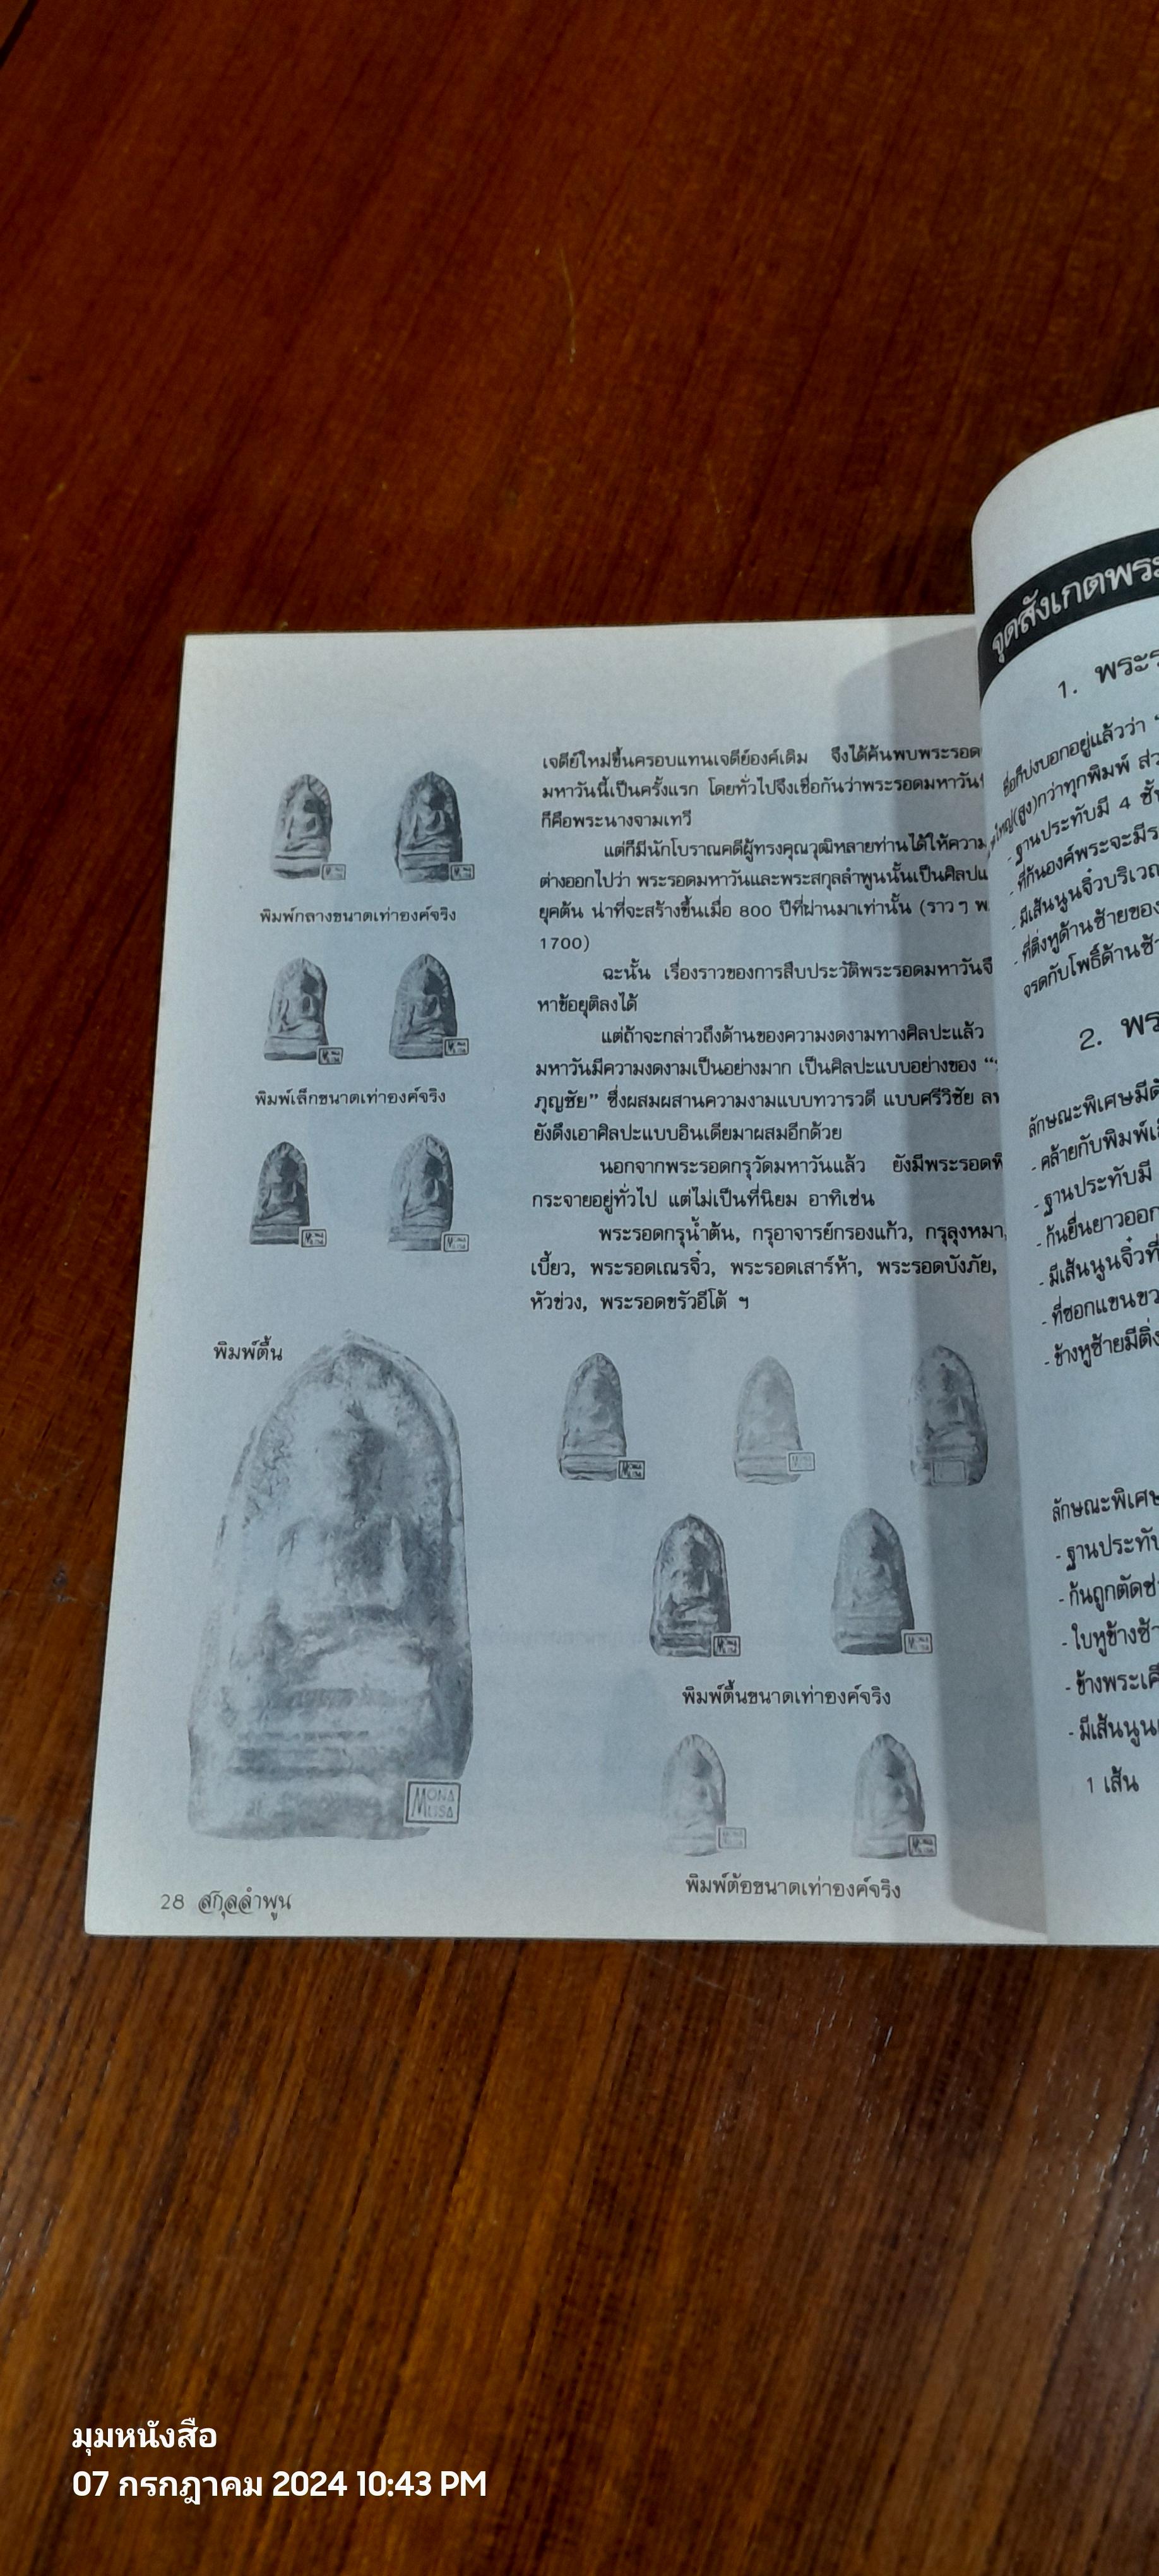 พิมพ์กลางขนาดเท่าองค์จริง
พิมพ์เล็กขนาดเท่าองค์จริง
พิมพ์ตื้น
MONA LISA
28 สกุลลำพูน
เจดีย์ใหม่ขึ้นครอบแทนเจดีย์องค์เดิม จึงได้ค้นพบพระรอด
มหาวันนี้เป็นครั้งแรก โดยทั่วไปจึงเชื่อกันว่าพระรอดมหาวัน
ก็คือพระนางจามเทวี
แต่ก็มีนักโบราณคดีผู้ทรงคุณวุฒิหลายท่านได้ให้ความ
ต่างออกไปว่า พระรอดมหาวันและพระสกุลลำพูนนั้นเป็นศิลป
ยุคต้น น่าที่จะสร้างขึ้นเมื่อ 800 ปีที่ผ่านมาเท่านั้น (ราว ๆ พ
1700)
ฉะนั้น เรื่องราวของการสืบประวัติพระรอดมหาวันจึ
หาข้อยุติลงได้
แต่ถ้าจะกล่าวถึงด้านของความงดงามทางศิลปะแล้ว
มหาวันมีความงดงามเป็นอย่างมาก เป็นศิลปะแบบอย่างของ “
ภุญชัย” ซึ่งผสมผสานความงามแบบทวารวดี แบบศรีวิชัย
ยังดึงเอาศิลปะแบบอินเดียมาผสมอีกด้วย
นอกจากพระรอดกรุวัดมหาวันแล้ว ยังมีพระรอด
กระจายอยู่ทั่วไป แต่ไม่เป็นที่นิยม อาทิเช่น
พระรอดกรุน้ำต้น, กรุอาจารย์กรองแก้ว, กรุลุงหมา,
เบี้ยว, พระรอดเณรจิ๋ว, พระรอดเสาร์ห้า, พระรอดบังภัย,
หัวข่วง, พระรอดขรัวอีโต้ ฯ
พิมพ์ตื้นขนาดเท่าองค์จริง
พิมพ์ต้อขนาดเท่าองค์จริง
จุดสังเกตพระ
1. พระ
ชื่อก็บ่งบอกอยู่แล้วว่า “
ใหญ่(สูง)กว่าทุกพิมพ์
- ฐานประทับมี 4 ชั้
- ที่ก้นองค์พระจะมี
- มีเส้นนูนจิ๋วบริเวณ
- ที่ติ่งหูด้านซ้ายของ
จรดกับโพธิ์ด้าน
2. พระ
ลักษณะพิเศษมี
- คล้ายกับพิมพ์
- ฐานประทับมี
- ก้นยื่นยาวออก
- มีเส้นนูนจิ๋วที่
- ที่ซอกแขนขว
- ข้างหูซ้ายมีติ่ง
ลักษณะพิเศษ
- ฐานประทับ
- ก้นถูกตัด
- ใบหูข้างซ้า
- ข้างพระเศี
- มีเส้นนูน
1 เส้น
มุมหนังสือ
07 กรกฎาคม 2024 10:43 PM